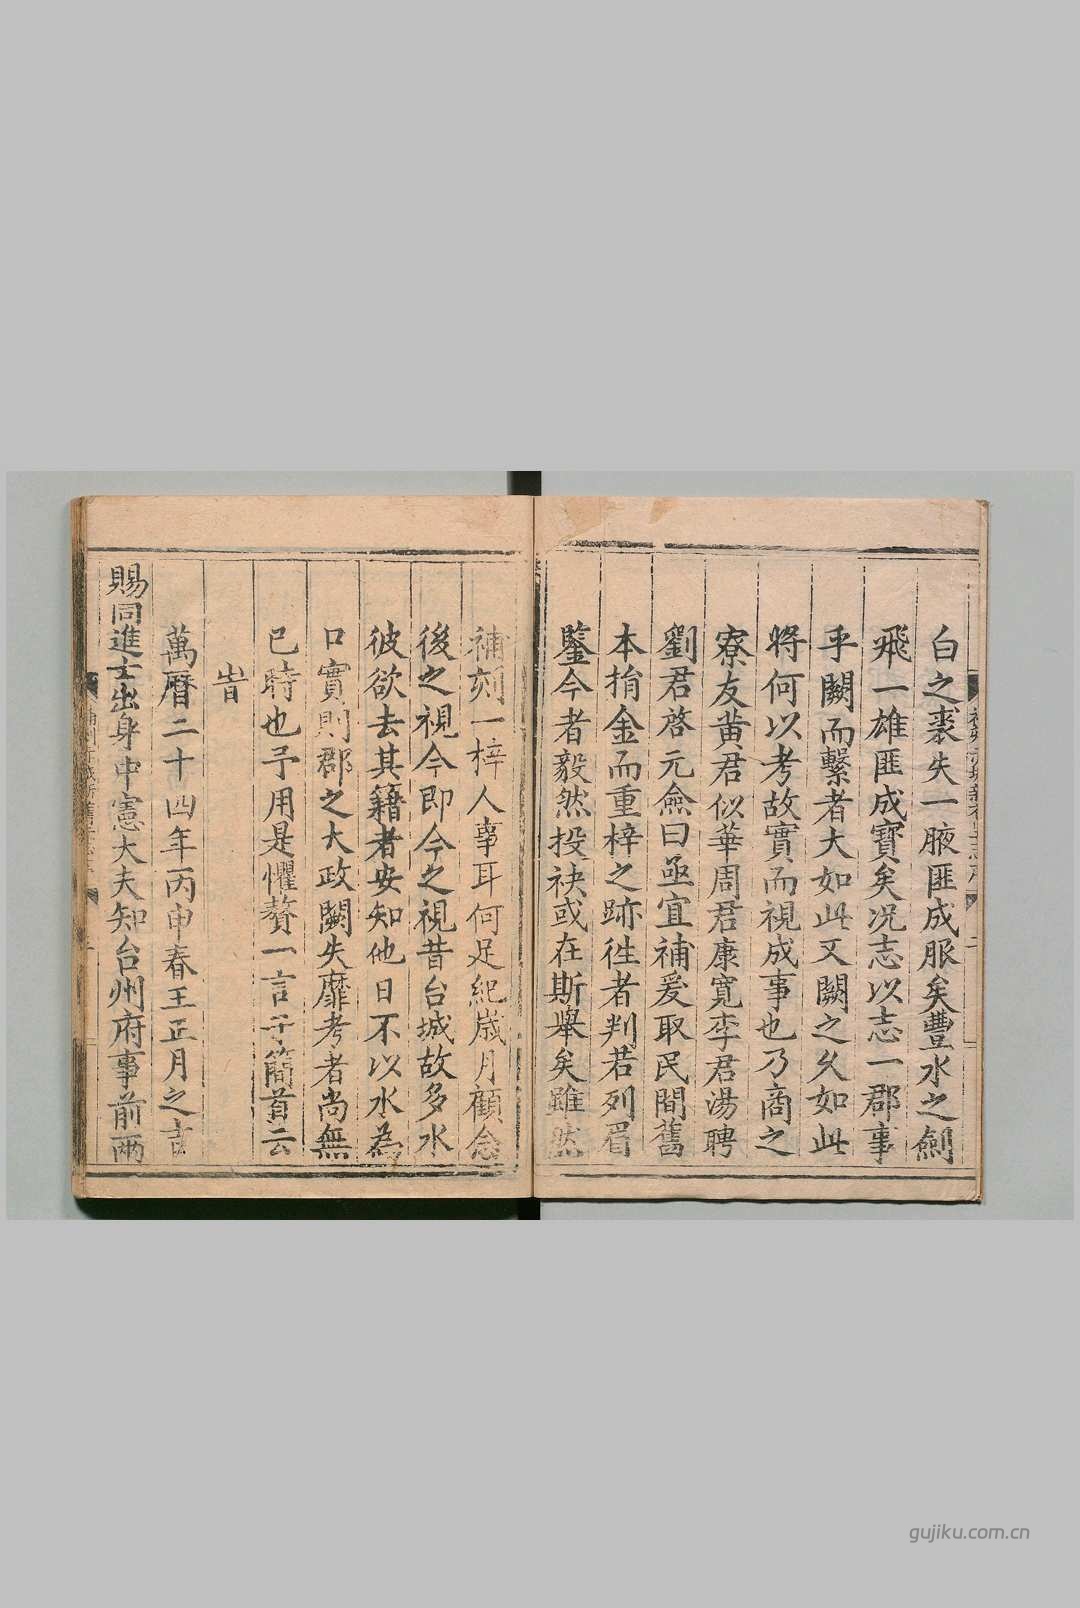 白之裘失一腋匪成服矣豐水之劍
飛一雄匪成寶矣况志以志一郡事
乎闕而繫者大如此又闕之久如此
将何以考故實而視成事也乃商之
寮友黄君似華周君康寛李君湯聘
劉君啓元僉曰亟宜補爰取民間舊
本捐金而重梓之跡徃者判若列眉
鑒今者毅然投袂或在斯舉矣雖然
補刻一梓人事耳何足紀歲月顧念
後之視今即今之視昔台城故多水
彼欲去其籍者安知他日不以水為
口實則郡之大政闕失靡考者尚無
已時也予用是懼贅一言于簡首云
旹
萬曆二十四年丙申春王正月之吉
賜同進士出身中憲大夫知台州府事前兩
gujiku.com.cn